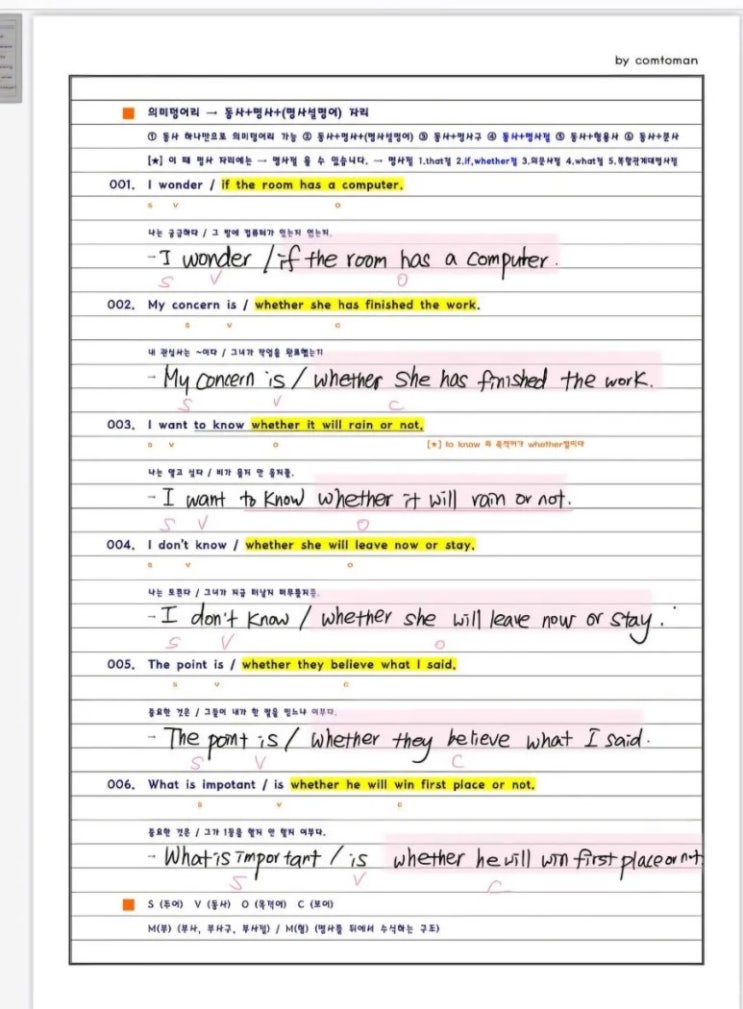 by comtoman
의미덩어리 → 동사+명사+(명사설명어) 자리
① 동사 하나만으로 의미덩어리 가능 ② 동사+명사+(명사설명어) ③ 동사+명사구 ④ 동사+명사절 ⑤ 동사+형용사 ⑥ 동사+분사
[★] 이 때 명사 자리에는 → 명사절 올 수 있습니다. → 명사절 1.that절 2.if,whether절 3.의문사절 4.what절 5.복합관계대명사절
001. I wonder / if the room has a computer.
S V O
나는 궁금하다 / 그 방에 컴퓨터가 있는지 없는지.
- I wonder / if the room has a computer.
S V O
002. My concern is / whether she has finished the work.
S V C
내 관심사는 ~이다 / 그녀가 작업을 완료했는지
- My concern is / whether she has finished the work.
S V C
003. I want to know whether it will rain or not.
S V O [★] to know 의 목적어가 whether절이다
나는 알고 싶다 / 비가 올지 안 올지를.
- I want to know whether it will rain or not.
S V O
004. I don't know / whether she will leave now or stay.
S V O
나는 모른다 / 그녀가 지금 떠날지 머무를지를.
- I don't know / whether she will leave now or stay.
S V O
005. The point is / whether they believe what I said.
S V C
중요한 것은 / 그들이 내가 한 말을 믿느냐 여부다.
- The point is / whether they believe what I said.
S V C
006. What is impotant / is whether he will win first place or not.
S V C
중요한 것은 / 그가 1등을 할지 안 할지 여부다.
- What is important / is whether he will win first place or not
S V C
S (주어) V (동사) O (목적어) C (보어)
M(부) (부사, 부사구, 부사절) / M(형) (명사를 뒤에서 수식하는 구조)